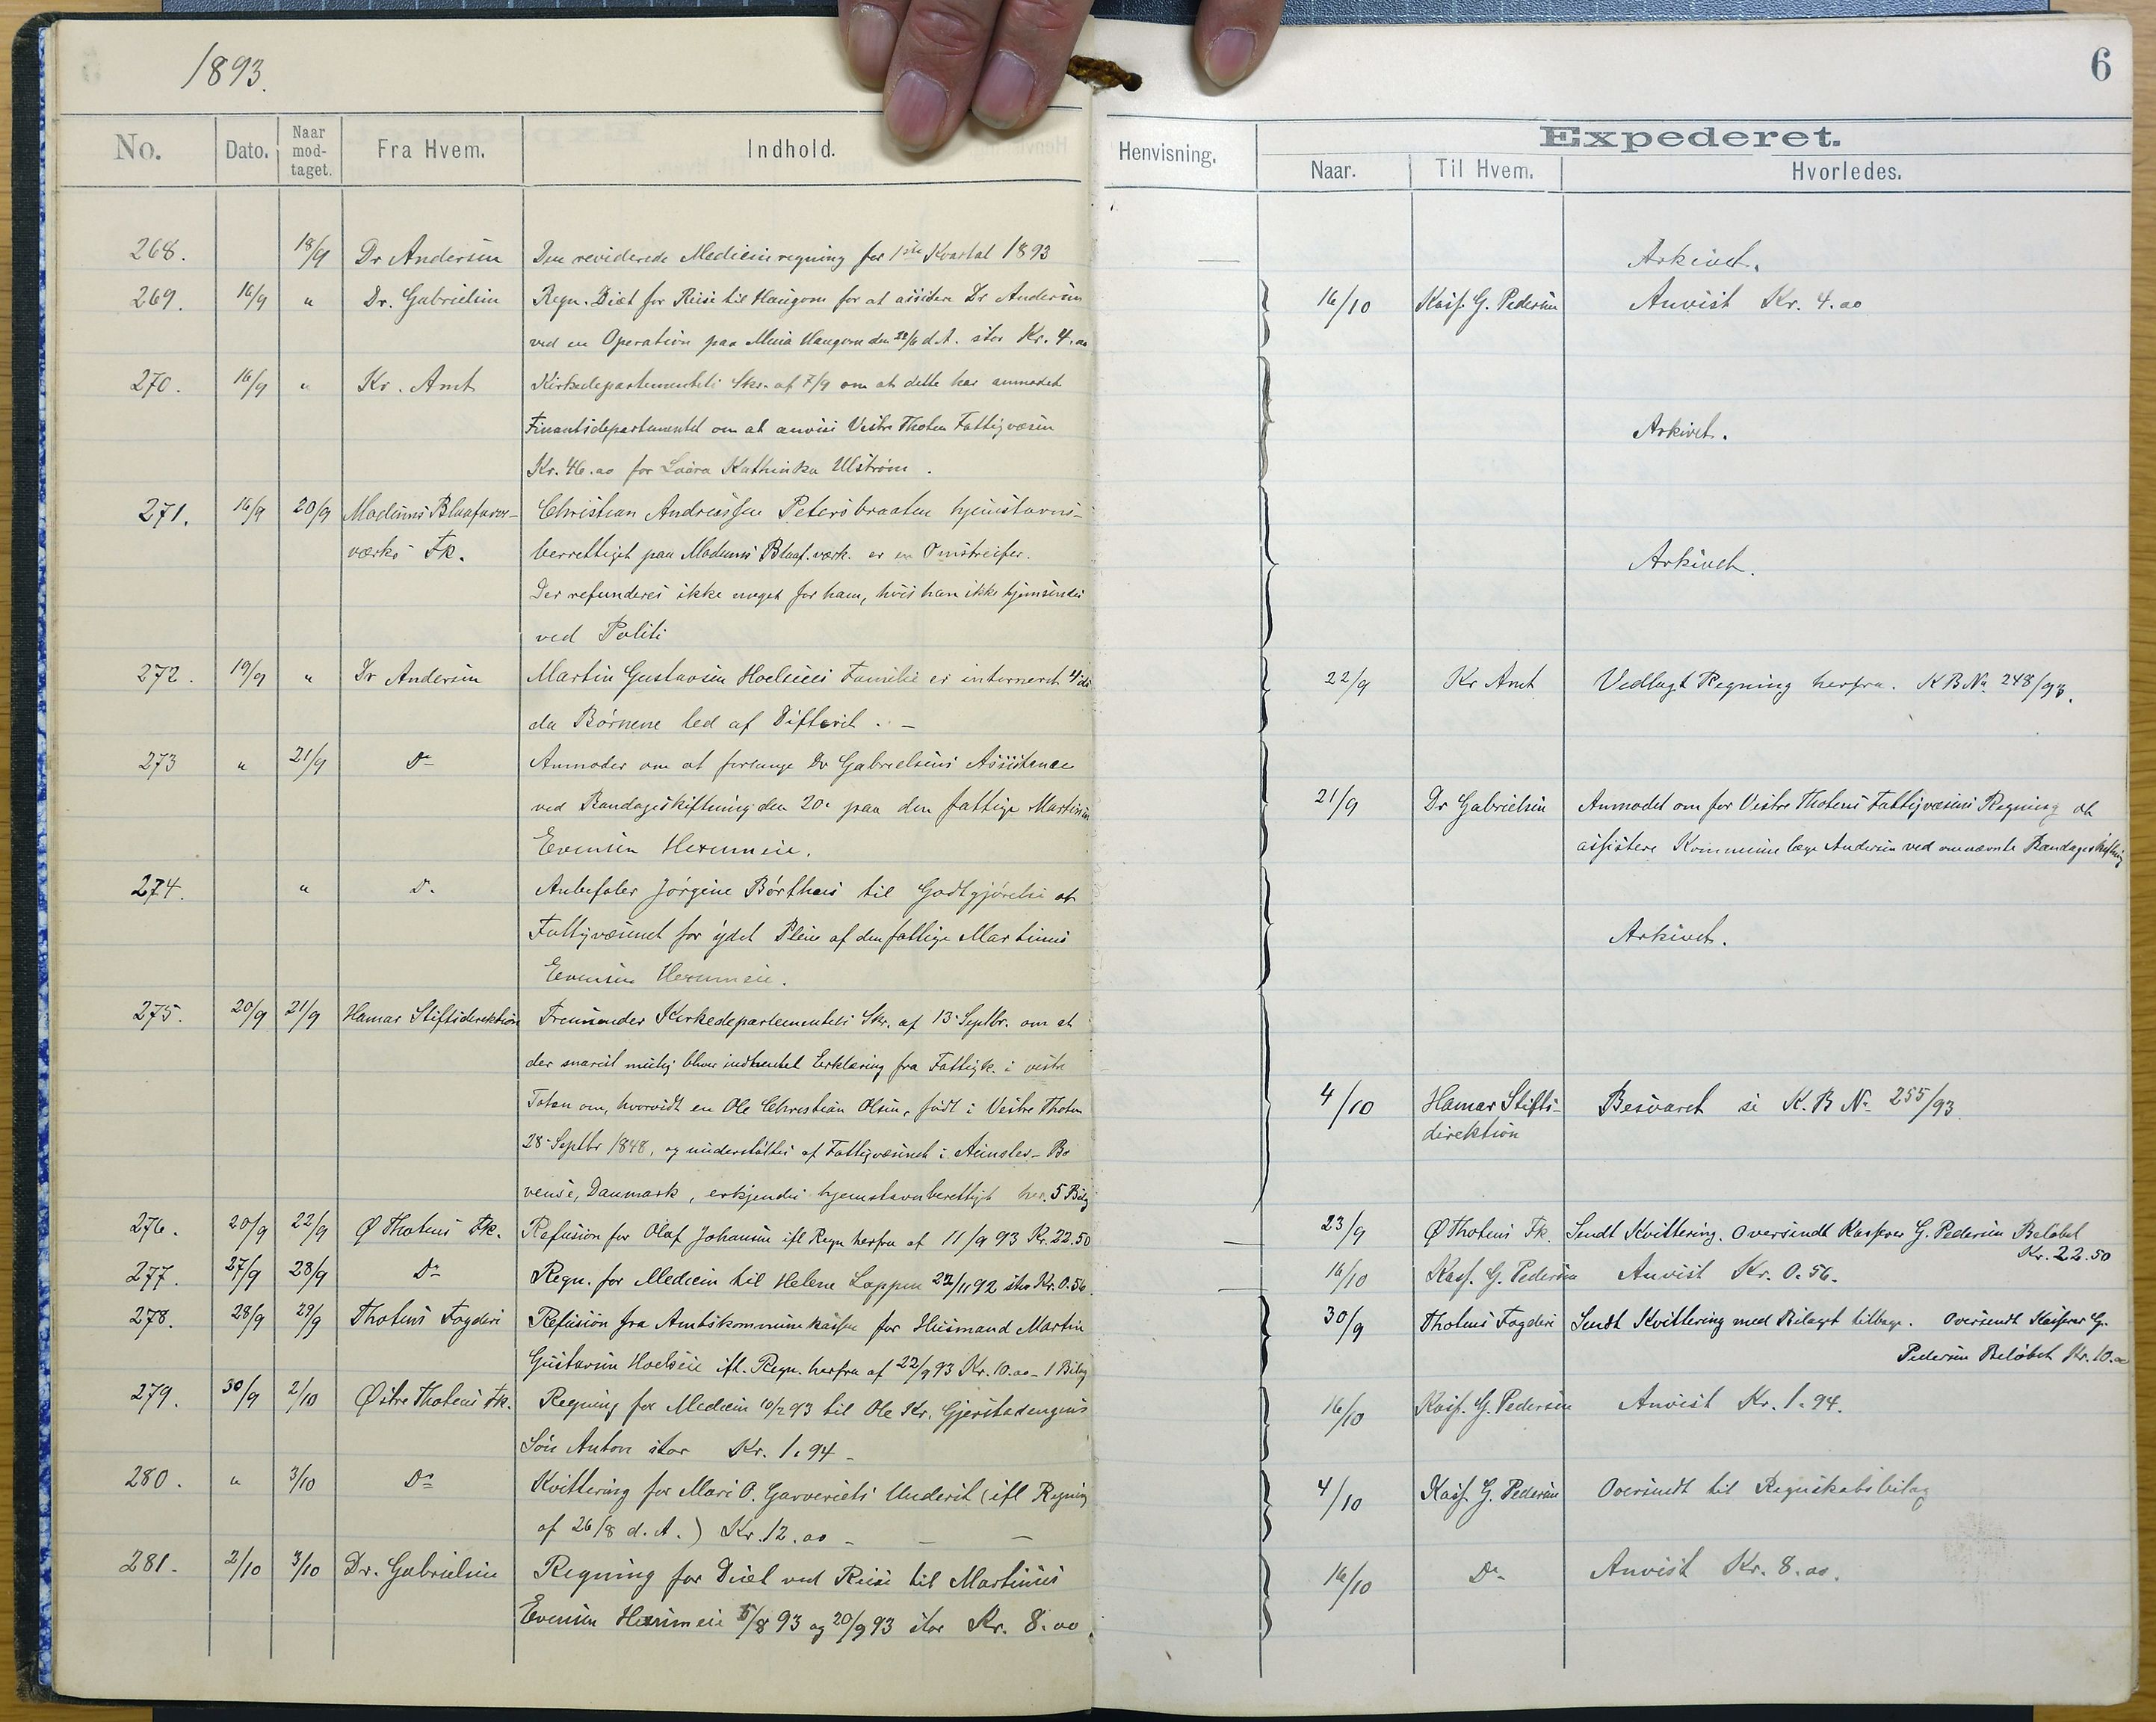 1893.
6
No. Dato. Naar mod-taget. Fra Hvem. Indhold. Henvisning. Expederet.
Naar. Til Hvem. Hvorledes.
268. 18/9 Dr Andersen Den reviderede Medicinregning for 1ste Kvartal 1893 — Arkivet.
269. 16/9 " Dr. Gabrielsen Regn. Diæt for Reise til Haugom for at assistere Dr Andersen 16/10 Kass. G. Pedersen Anvist Kr. 4.00
ved en Operation paa Haugom den d.A. stor Kr. 4.00
270. 16/9 " Kr. Amt Kirkedepartementets Skr. af 7/9 om at dette har anmodet
Finantsdepartementet om at anvise Vestre Thoten Fattigvæsen Arkivet.
Kr. 46.00 for Kathinka Ulstrøm.
271. 16/9 20/9 Modums Blaafarve- Christian Andreassen Petersbraaten hjemstavns-
værks Fk. berrettiget paa Modums Blaaf.værk. er en Omstreifer. Arkivet.
Der refunderes ikke noget for ham, hvis han ikke hjemsendes
ved Politi
272. 19/9 " Dr Andersen Martin Gustavsen Hoelseies Familie er interneret 22/9 Kr Amt Vedlagt Regning herfra. K B No. 248/93.
da Børnene led af Difterit. —
273 " 21/9 Do Anmoder om at forlange Dr Gabrielsens Assistance
ved Bandageskiftning den 20. paa den fattige Martinus 21/9 Dr Gabrielsen Anmodet om for Vestre Thotens Fattigvæsens Regning at
Evensen Hexumeie. assistere Kommunelæge Andersen ved omnævnte Bandageskiftning
274. " Do Anbefaler Jørgine Børthus til Godtgjørelse af
Fattigvæsenet for ydet Pleie af den fattige Martinus Arkivet.
Evensen Hexumeie.
275. 20/9 21/9 Hamar Stiftsdirektion Fremsender Kirkedepartementets Skr. af 13. Septbr. om at
der snarest mulig bliver indhentet Erklæring fra Fattigk. i vestre
Toten om, hvorvidt en Ole Christian Olsen, født i Vestre Thoten 4/10 Hamar Stifts- Besvaret se K.B No. 255/93
direktion
28. Septbr 1848, og understøttes af Fattigvæsenet i
vense, Danmark, erkjendes hjemstavnberettiget her. 5 Bilag
276. 20/9 22/9 Ø Thotens Fk. Refusion for Olaf Johansen ifl Regn herfra af 11/9 93 Kr. 22.50 — 23/9 Ø Thotens Fk. Sendt Kvittering. Oversendt Kasserer G. Pedersen Beløbet
Kr. 22.50
277. 27/9 28/9 Do Regn. for Medicin til Helene Loppen 22/11 92 stor Kr. 0.56. — 16/10 Kass. G. Pedersen Anvist Kr. 0.56.
278. 28/9 29/9 Thotens Fogderi Refusion fra Amtskommunekassen for Husmand Martin 30/9 Thotens Fogderi Sendt Kvittering med Bilaget tilbage. Oversendt Kasserer G.
Gustavsen Hoelseie ifl. Regn. herfra af 22/9 93 Kr. 10.00 - 1 Bilag Pedersen Beløbet Kr. 10.00
279. 30/9 2/10 Østre Thotens Fk. Regning for Medicin 10/2 93 til Ole Kr. Gjerstadengens 16/10 Kass. G. Pedersen Anvist Kr. 1.94.
Søn Anton stor Kr. 1.94 -
280. " 3/10 Do Kvittering for Mari O. Garveriets Underst (ifl Regning 4/10 Kass. G. Pedersen Oversendt til Regnskabsbilag
af 26/8 d. A.) Kr. 12.00 - — —
281. 2/10 3/10 Dr. Gabrielsen Regning for Diæt ved Reise til Martinus 16/10 Do Anvist Kr. 8.00.
Evensen Hexumeie 5/8 93 og 20/9 93 stor Kr. 8.00.